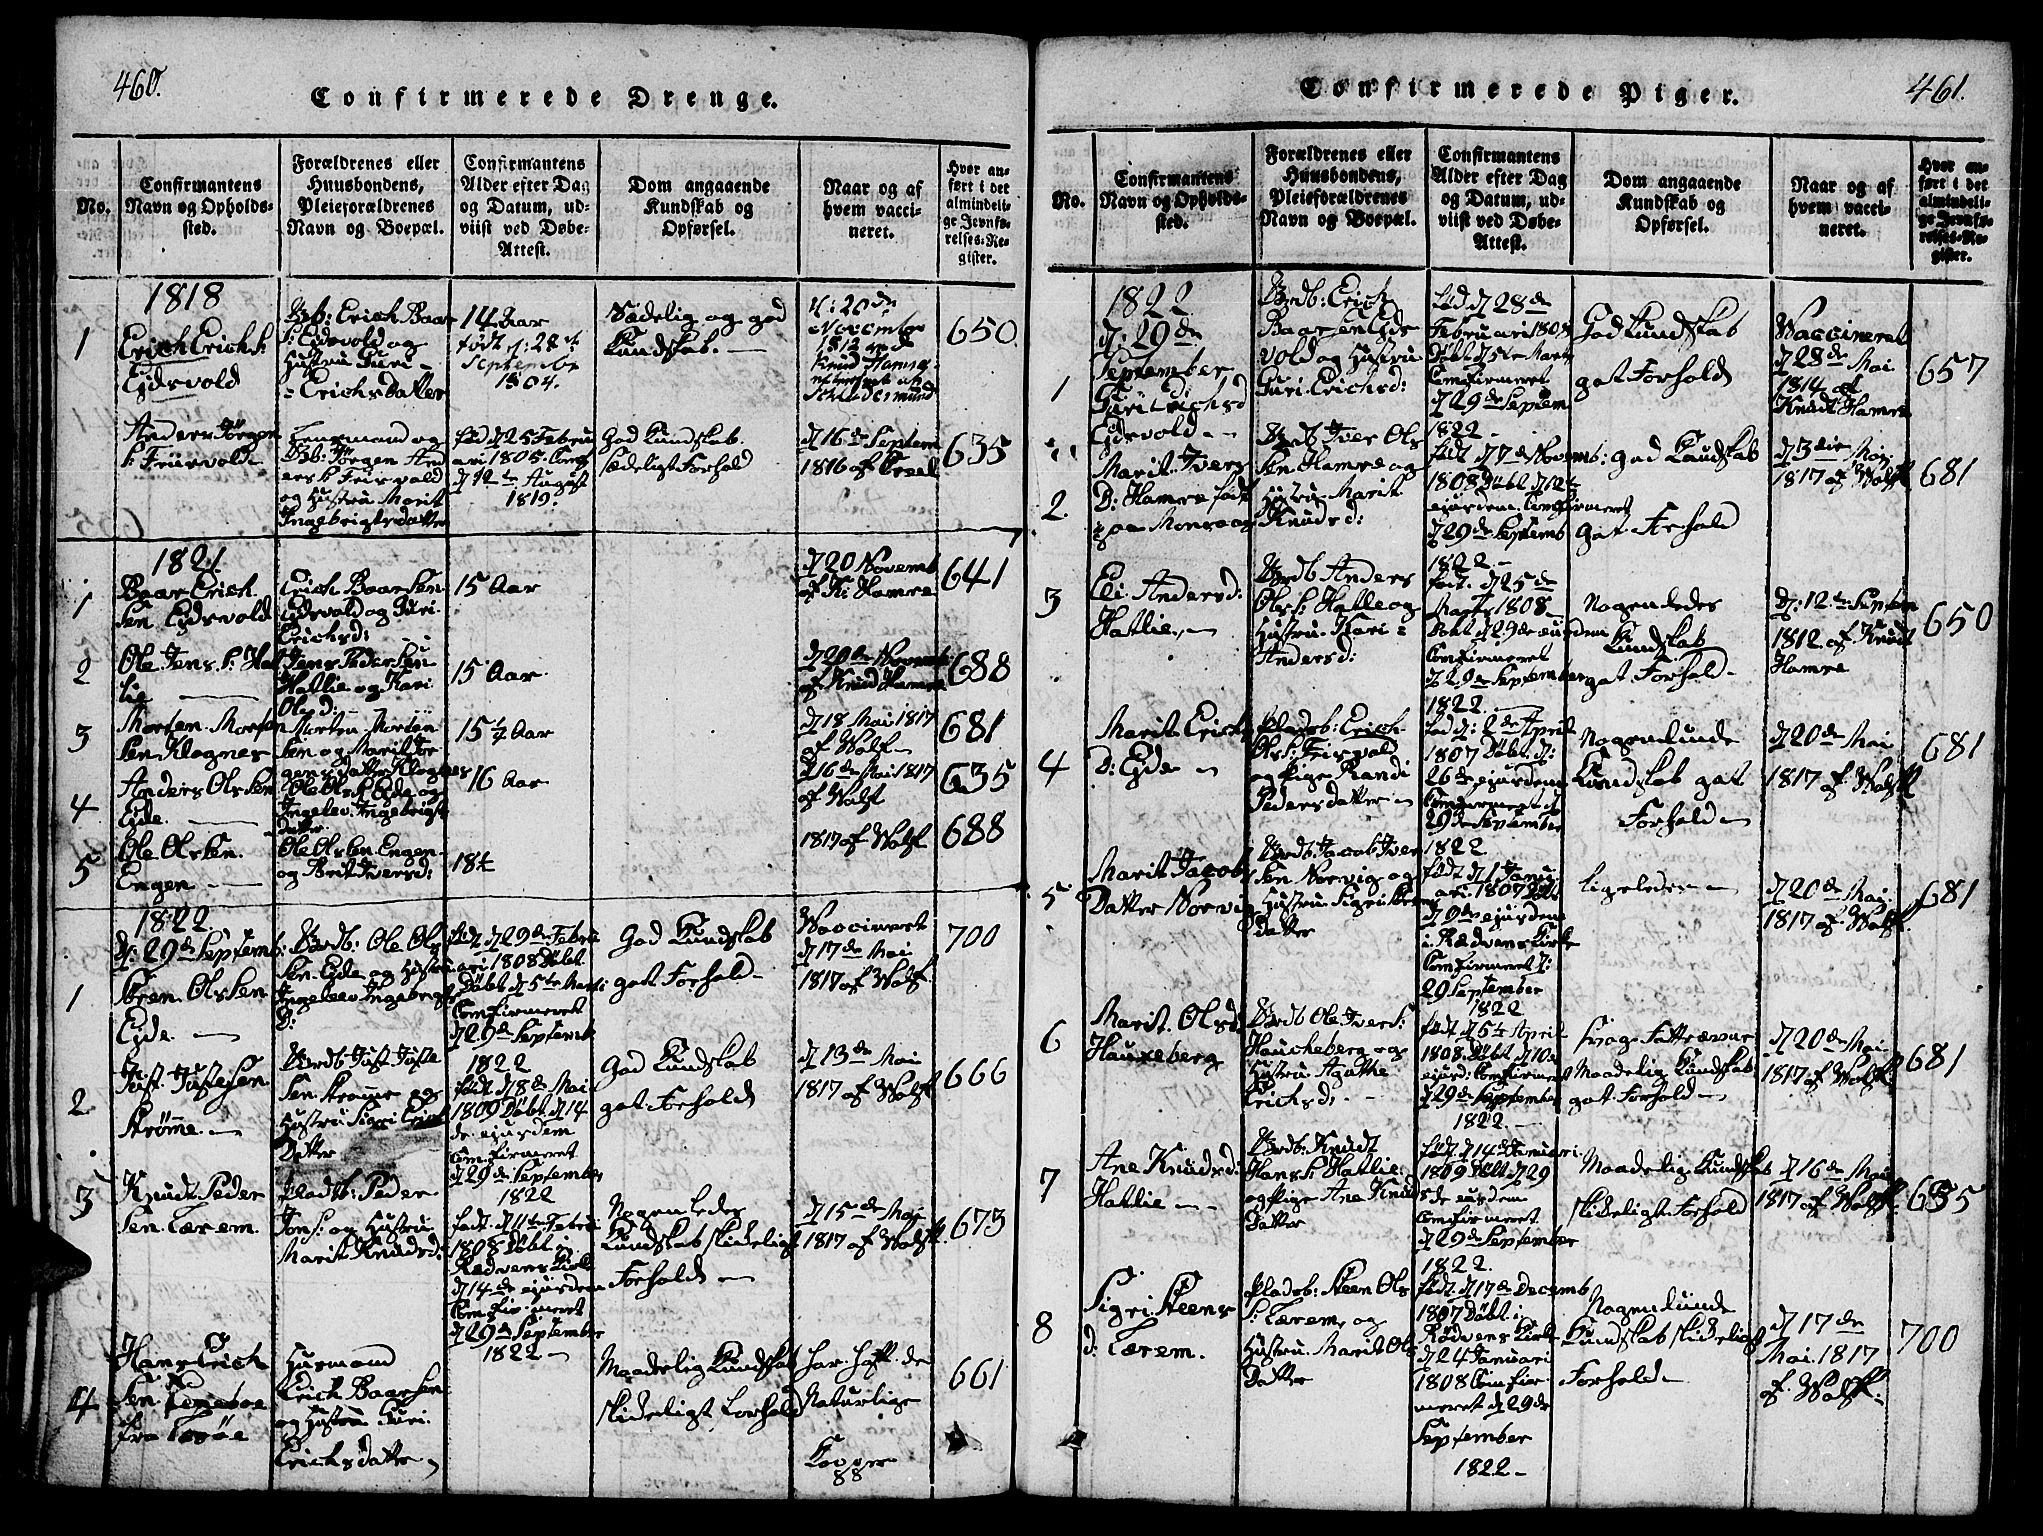 460.
Confirmerede Drenge.
No.
Confirmantens
Navn og Opholds-
sted.
Forældrenes eller
Huusbondens,
Pleieforældrenes
Navn og Boepæl.
Confirmantens
Alder efter Dag
og Datum, ud-
viist ved Døbe-
Attest.
Dom angaaende
Kundskab og
Opførsel.
Naar og af
hvem vacci-
neret.
Hvor an-
ført i det
almindeli-
ge Jevnfø-
relses-Re-
gister.
1818
1
Erich Erichs:
Ejdsvold
Erich Baar
s: Eidsvold og
Hustru Guri
Erichs Datter
14 Aar
født d: 28
September
1804.
Sædelig og god
Kundskab. —
d: 20 de
November
1812 ved
Knud Hamre
650.
Anders Jörgen
s: Friisvold
og
Jörgen And
ers s: Friisvold
og Hustru Marit
Ingebrigtsdatter
fød d 25 Febru
ari 1805. Conf
d 12te August
1819.
God Kundskab.
Sædeligt Forhold
d 16 de Septem
1816 af
635
1821
1
Baar Erich
Sen Eydsvold
Erich Baarsen
Eidsvold og Guri
Erichsd:
15 Aar
d 20 Novemb
af K: Hamre
641
2
Ole Jens s: Hat
lie —
Jens Pedersen
Hatlie og Kari
Olsd: —
15 Aar
d 20 de Novemb
af Knud Hamre
688
3
Morten Morten
Sen Klognes
Morten Morten
Sen og Marit Jør
gens datter Klognes
15 ½ Aar
d 18 Mai 1817
af Wolf
681
4
Anders Olsen
Eide —
Ole Ols s: Eide og
Ingelev Ingebrigts
datter
16 Aar
d 16 de Mai 1817
af Wolf
635
5
Ole Olsen
Engen —
Ole Olsen Engen
og Brit Iversd:
18
1817 af Wolf
688
1822
d: 29 de Septemb:
1
Olsen
Eide —
Ole Ols
Sen Eide og Hustru
Ingelev Ingebrigts
D:
fød d 29 de Febru
ari 1808 Döbt
Döbt d 5te Marti
Comfirmeret
d 29 de Septemb
1822
God Kundskab
got Forhold —
Vaccineret
d 17 de Mai
1817 af Wolf.
700
2
Just Justesen
Strømme —
Just Juste
Sen Strømme og
Hustru Sigri Erich
Datter
født d 8 de Mai
1809 Döbt d 14
de ejusdem
Comfirmeret
d 29 de September
1822
God Kundskab
got Forhold
d 13 de Mai
1817 af Wolf
666
3
Knudt Peder
Sen Lerem
Pladsb: Peder
Jons: og Hustru
Marit Knudsd:
født d 11te Febru
1808 Döbt i
Rødvens Kirke
d 14 de ejusdem
Comfirmeret
d 29 de September
1822 —
Nogenledes
Kundskab skikeligt
Forhold —
d 15 de Mai
1817 af Wolf
673
4
Hans Erich
Sen
fra
Husmand
Erich Baarsen
og Hustru Guri
Erichsdatter
Maadelig Kundskab
skikeligt Forhold
har haft de
Naturlige
Kopper
88
661
461.
Confirmerede Piger.
No.
Confirmantens
Navn og Opholds-
sted.
Forældrenes eller
Huusbondens,
Pleieforældrenes
Navn og Boepæl.
Confirmantens
Alder efter Dag
og Datum, ud-
viist ved Døbe-
Attest.
Dom angaaende
Kundskab og
Opførsel.
Naar og af
hvem vacci-
neret.
Hvor an-
ført i det
almindeli-
ge Jevnfø-
relses-Re-
gister.
1822
d: 29 de
September
1
Guri Erichsd
Eidsvold —
Erich
Baarsen Eyds
vold og Hustru
Guri Erichsd:
fød. d 28 de
Februari 1808
Döbt d 5te Marti
Comfirmeret
d 29 de Septem
1822
God Kundskab
got Forhold
Vaccineret
d 28 de Mai
1814 af
Knudt Hamre
657
2
Marit Ivers
D: Hamre født
Iver Ols
Sen Hamre og
Hustru Marit
Knudsd:
født d 7 de Novemb:
1808 Döbt d 12te
ejusdem. Comfirmeret
d 29 de Septemb
1822 —
god Kundskab
got Forhold
d 3die Maj
1817 af Wolf
681
3
Eli Andersd:
Hatlie, —
Anders
Ols s: Hatle og
Hustru Kari
Andersd:
født: d 25 de
Marti 1808
Döbt d 29 de eiusdem
Comfirmeret
d 29 de September
1822. —
Nogenledes
Kundskab
got Forhold —
d: 12te Septem
1812 af Knudt
Hamre
650
4
Marit Erichs
D: Eide —
Pladsb: Erich
Ols s: Friisvold
og Pige Randi
Pedersdatter —
født d: 2 de April
1807 Döbt d:
26 de ejusdem
Comfirmeret d
29 de September
1822
Nogenlunde
Kundskab got
Forhold —
d 20 de Mai
1817 af Wolf
681
5
Marit Jacobs
Datter Norvig
Jacob Iver
Sen Norvig og
Hustru Sigri
Datter
født d 1 Janu
ari 1807 Döbt
d 9 de ejusdem
i Rødvens Kirke
Comfirmeret d:
29 September
1822
ligeledes —
d 20 de Mai
1817 af Wolf.
681
6
Marit Olsd:
Haukeberg
Ole Ivers:
Haukeberg og
Hustru Agathe
Erichsd: —
født d 5te April
1808 Döbt d 10 de
ejusd: Comfirmeret
d 29 de September
1822. —
Maadelig Kundskab
got Forhold —
d 20 de Mai
1817 af Wolf
681
7
Ane Knudsd:
Hatlie —
Knudt
Hans s: Hatlie
og Pige Ane Knuds
Datter
født d 14 de Januari
1809 Döbt d 29
de eiusdem
Comfirmeret
d 29 de September
1822.
Maadelig Kundskab
skikeligt Forhold
d 16 de Mai
1817 af Wolf
635
8
Sigri Steens
d: Lerem.
Pladsb: Steen Ols
s: Lerem, og
Hustru Marit Ols
Datter
født d 17 de Decemb
1807 Döbt i
Rødvens Kirke
d 24 Januari
1808 Comfir
meret d 29 de
September
1822 —
Nogenlunde
Kundskab skikeligt
Forhold —
d 17 de
Mai 1817
af Wolf
700